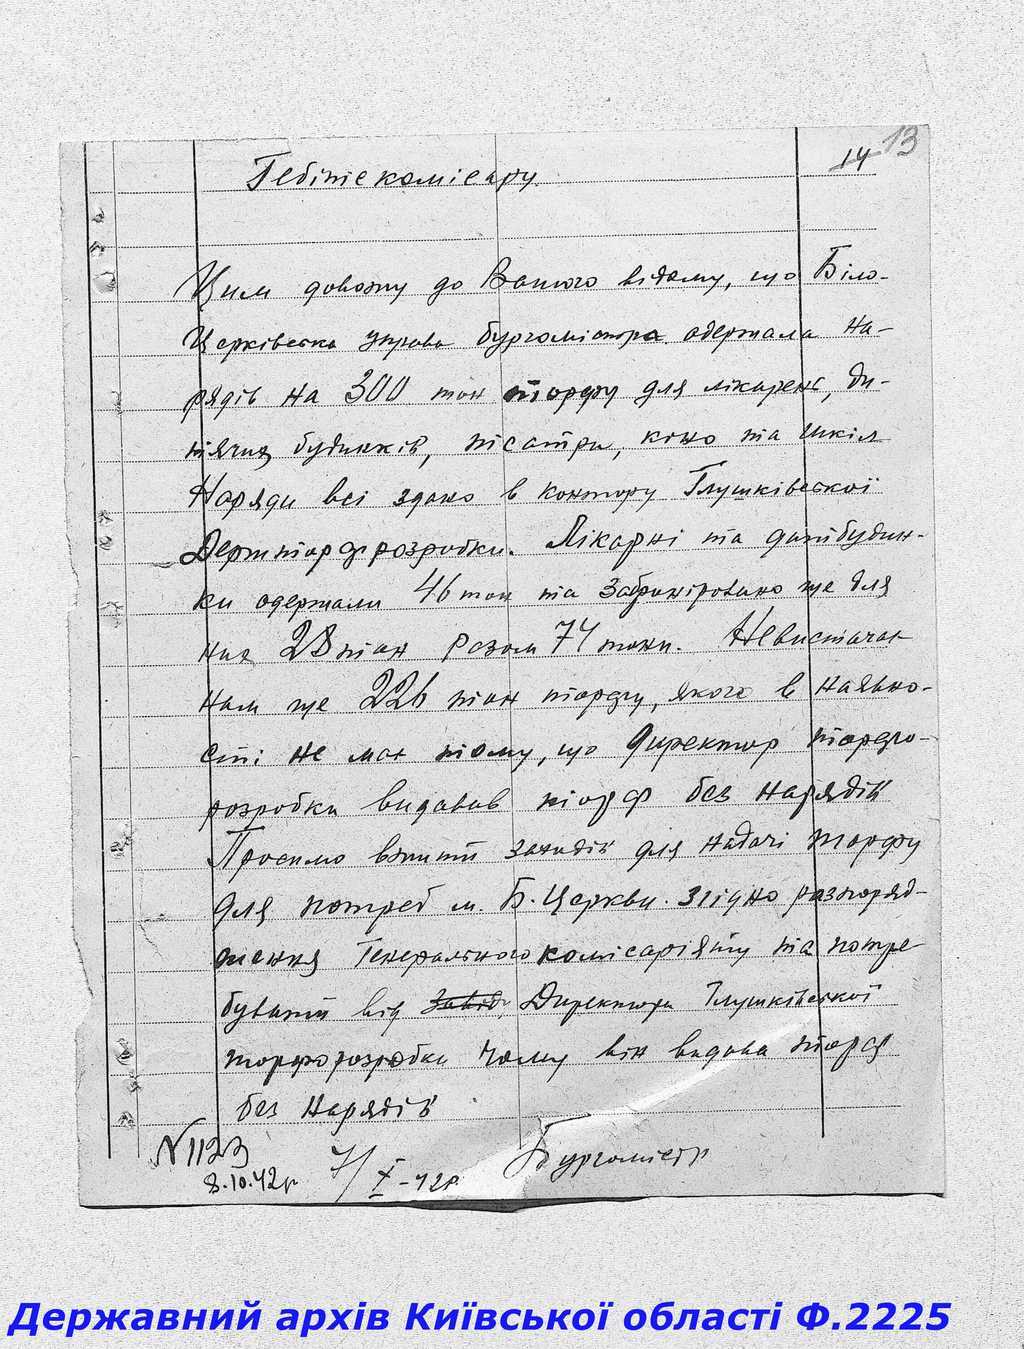 14 13
Гебітскомісару.
Цим довожу до Вашого відому, що Біло-
Церківська управа бургомістра одержала на-
рядів на 300 тон торфу для лікарень, ди-
тячих будинків, театри, кіно та шкіл
Наряди всі здано в контору Глушківської
Держторфрозробки. Лікарні та дитбудин-
ки одержали 46 тон та заброніровано ще для
них 28 тон разом 74 тони. Невистачає
нам ще 226 тон торфу, якого в наявно-
сті не має тому, що директор торфо-
розробки видавав торф без нарядів
Просимо вжити заходів для надачі торфу
для потреб м. Б. Церкви. згідно разпоряд-
ження Генерального комісаріяту та потре
бувати від Завід, Директора Глушківської
торфорозробки чому він видава торф
без нарядів
Бургомістр
7/X-42р.
N 1123
8.10.42р
Державний архів Київської області Ф.2225